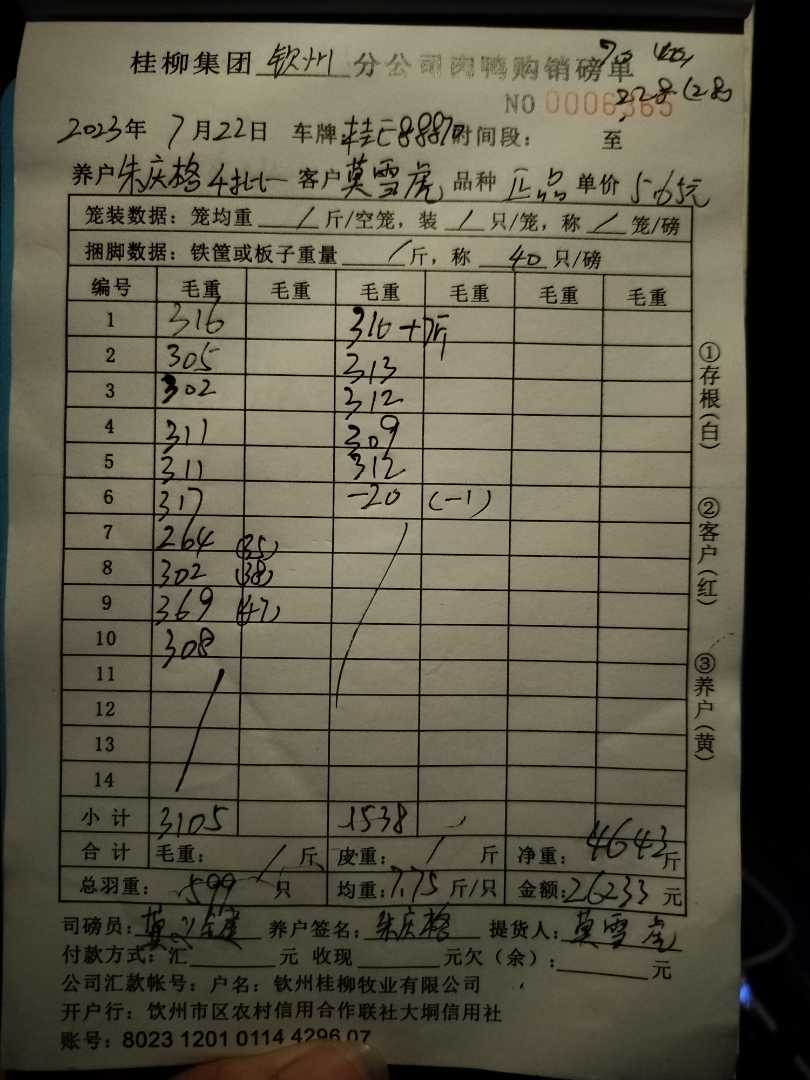 桂柳集团 钦州 分公司肉鸭购销磅单
NO 0006365
2023年 7月22日 车牌:桂E88870 时间段: 至
养户 朱庆格 4批 客户 莫雪虎 品种 正品 单价 5.65元
笼装数据: 笼均重 / 斤/空笼, 装 / 只/笼, 称 / 笼/磅
捆脚数据: 铁筐或板子重量 / 斤, 称 40 只/磅
编号 毛重 毛重 毛重 毛重 毛重 毛重
1 316 316+7斤
2 305 313
3 302 312
4 311 309
5 311 312
6 317 -20 (-1)
7 264 (35)
8 302 (38)
9 369 (47)
10 308
11
12
13
14
小计 3105 1538
合计 毛重: / 斤 皮重: / 斤 净重: 4643斤
总羽重: 599 只 均重: 7.75 斤/只 金额: 26233 元
司磅员: 养户签名: 朱庆格 提货人: 莫雪虎
付款方式: 汇 元 收现 元欠(余): 元
公司汇款帐号: 户名: 钦州桂柳牧业有限公司
开户行: 钦州市区农村信用合作联社大垌信用社
账号: 8023 1201 0114 4296 07
①存根(白)
②客户(红)
③养户(黄)